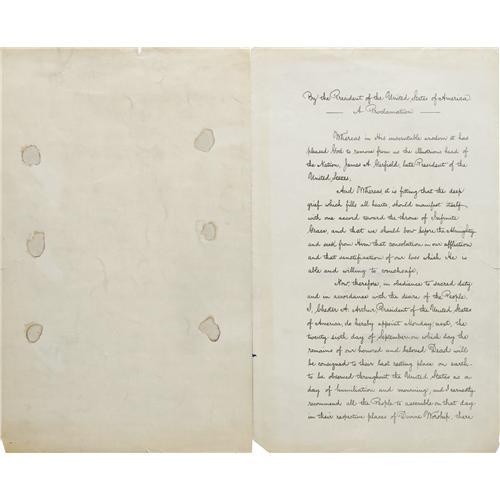 By the President of the United States of America
A Proclamation
Whereas in His inscrutable wisdom it has
pleased God to remove from us the illustrious head of
the Nation, James A. Garfield, late President of the
United States,
And Whereas it is fitting that the deep
grief which fills all hearts, should manifest itself,
with one accord toward the throne of Infinite
Grace, and that we should bow before the Almighty
and seek from Him that consolation in our affliction
and that sanctification of our loss which He is
able and willing to vouchsafe,
Now, therefore, in obedience to sacred duty
and in accordance with the desire of the People,
I, Chester A. Arthur, President of the United States
of America, do hereby appoint Monday next, the
twenty sixth day of September-on which day the
remains of our honored and beloved Dead will
be consigned to their last resting place on earth-
to be observed throughout the United States as a
day of humiliation and mourning; and I earnestly
recommend all the People to assemble on that day
in their respective places of Divine Worship, there